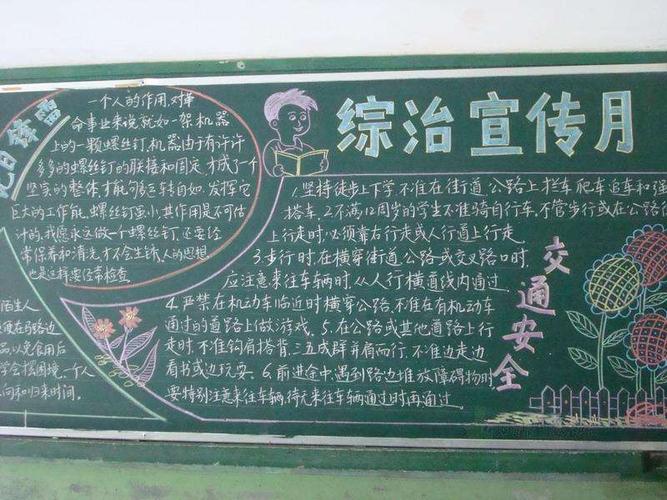 综治宣传月
雷锋日记
一个人的作用,对革
命事业来说,就如一架机器
上的一颗螺丝钉,机器由于有许许
多多的螺丝钉的联接和固定,才成了一个
坚实的整体,才能够运转自如,发挥它
巨大的工作能,螺丝钉虽小,其作用是不可估
计的,我愿永远做一个螺丝钉,还要经
常保养和清洗,才不会生锈,人的思想
也是这样,要经常检查。
1.坚持徒步上下学,不准在街道公路上拦车爬车追车和强
搭车、2.不满12周岁的学生不准骑自行车,不管步行或在公路
上行走时,必须靠右行走或人行道上行走.
3.步行时,在横穿街道公路或交叉路口时,
应注意来往车辆时,从人行横道线内通过,
4.严禁在机动车临近时横穿公路,不准在有机动车
通过的道路上做游戏,5.在公路或其他道路上行
走时,不准钩肩搭背,三五成群并肩而行,不准边走边
看书或边玩耍。6.前进途中,遇到路边堆放障碍物时
要特别注意来往车辆,待来往车辆通过时再通过。
交通安全
陌生人
要在马路边
品,以免食用后
学会找困境,一个人
向和归来时间。